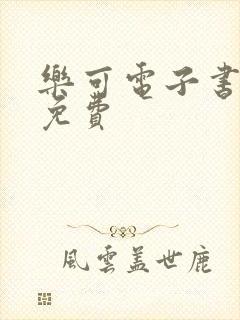 樂可電子書
免費
風雲蓋世鹿